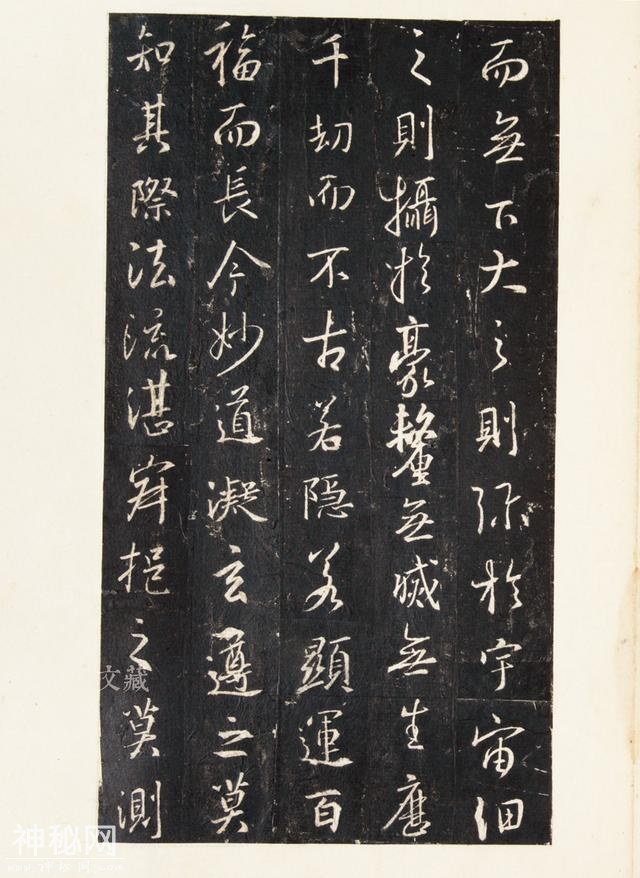 而無下大之則弥於宇宙細
之則攝於豪釐無滅無生歷
千劫而不古若隱若顯運百
福而長今妙道凝玄遵之莫
知其際法流湛寂挹之莫測
文藏
神秘网